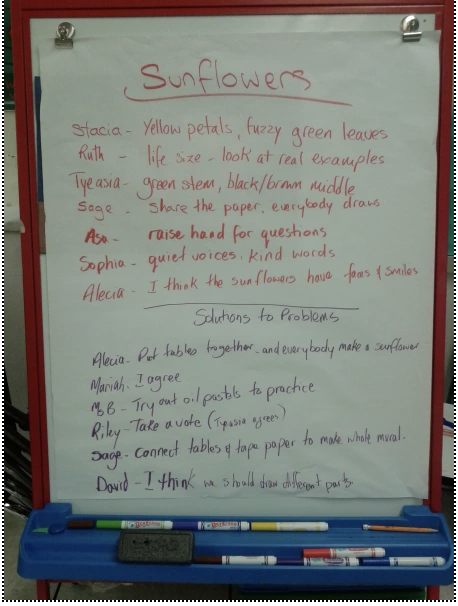 Sunflowers
Stacia - Yellow petals, fuzzy green leaves
Ruth - life size - look at real examples
Tyeasia - green stem, black/brown middle
Sage - share the paper, everybody draws
Asa - raise hand for questions
Sophia - quiet voices. kind words
Alecia - I think the sunflowers have faces & smiles
Solutions to Problems
Alecia - Put tables together - and everybody make a sunflower
Mariah. I agree
- Try out oil pastels to practice
Riley - Take a vote (Tyeasia agrees)
Sage - Connect tables & tape paper to make whole mural.
David - I think we should draw different parts.